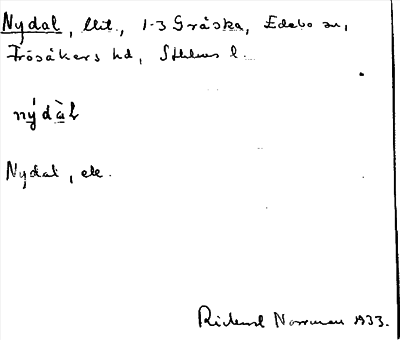 Nydal, lht., 1-3 Gråska, Edebo sn,
Frösåkers hd, Sthlms l.
nýdàl
Nydal, ek.
Rickard Norrman 1933.